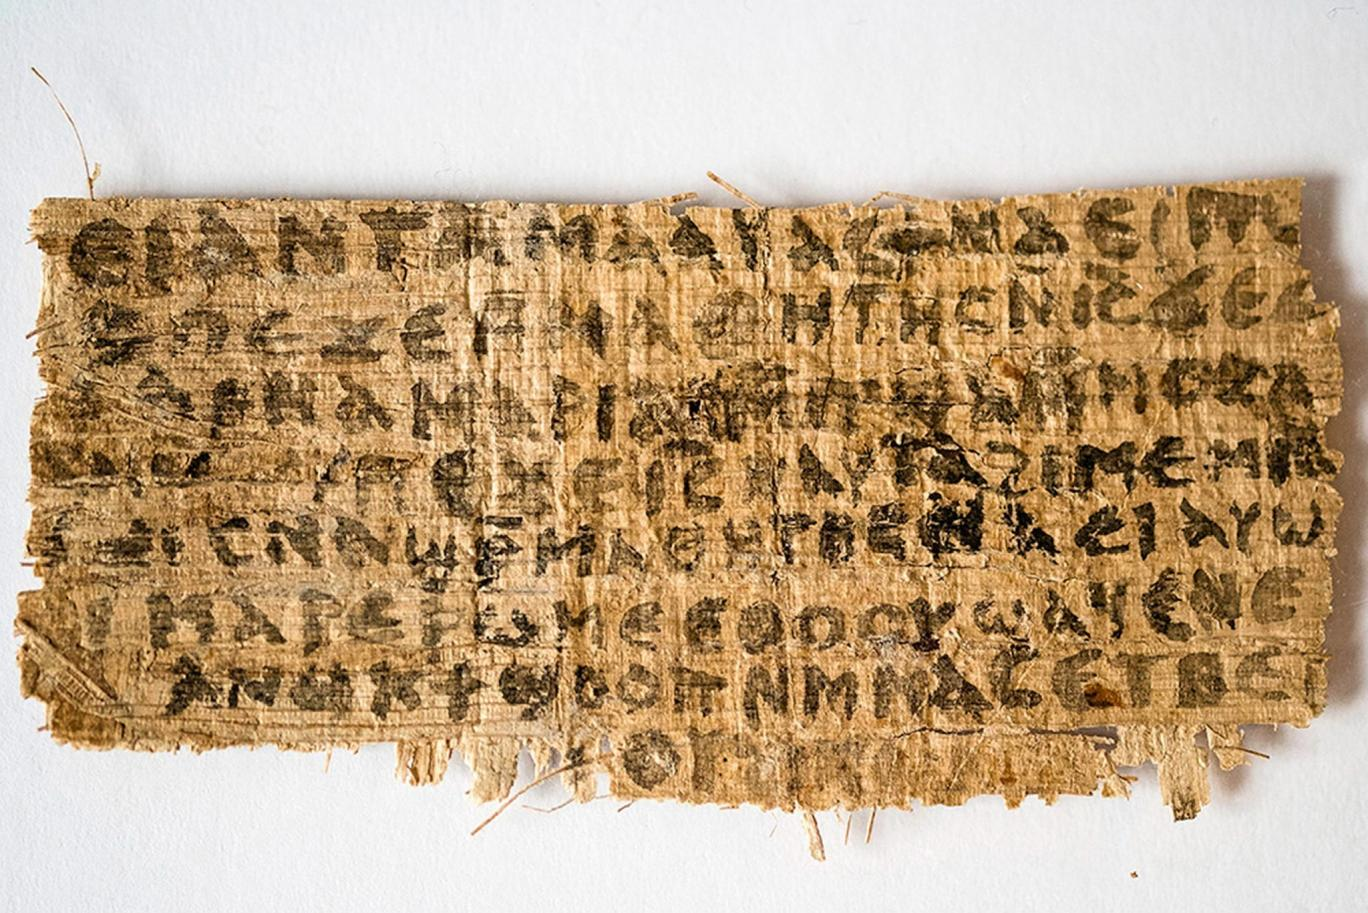 ⲉⲓ ⲁⲛ ⲧⲁⲙⲁⲁⲩ ⲁⲥϯ ⲛⲁⲉⲓ ⲡⲱ
ⲡⲉϫⲉ ⲙⲙⲁⲑⲏⲧⲏⲥ ⲛ̄ⲓ̄ⲥ̄ ϫⲉ ⲥ
ⲁⲣⲛⲁ ⲙⲁⲣⲓⲁⲙ ⲙⲡϣⲁ ⲙⲙⲟⲥ ⲁ
ⲡⲉϫⲉ ⲓ̄ⲥ̄ ⲛⲁⲩ ⲧⲁϩⲓⲙⲉ ⲙⲛ
ⲥⲛⲁϣⲣ̄ⲙⲁⲑⲏⲧⲏⲥ ⲛⲁⲉⲓ ⲁⲩⲱ
ⲓ ⲙⲁⲣⲉⲣⲱⲙⲉ ⲉⲑⲟⲟⲩ ϣⲁϥⲉ ⲛⲉ
ⲁⲛⲟⲕ ϯϣⲟⲟⲡ ⲛⲙⲙⲁⲥ ⲉⲧⲃⲉ ⲡ